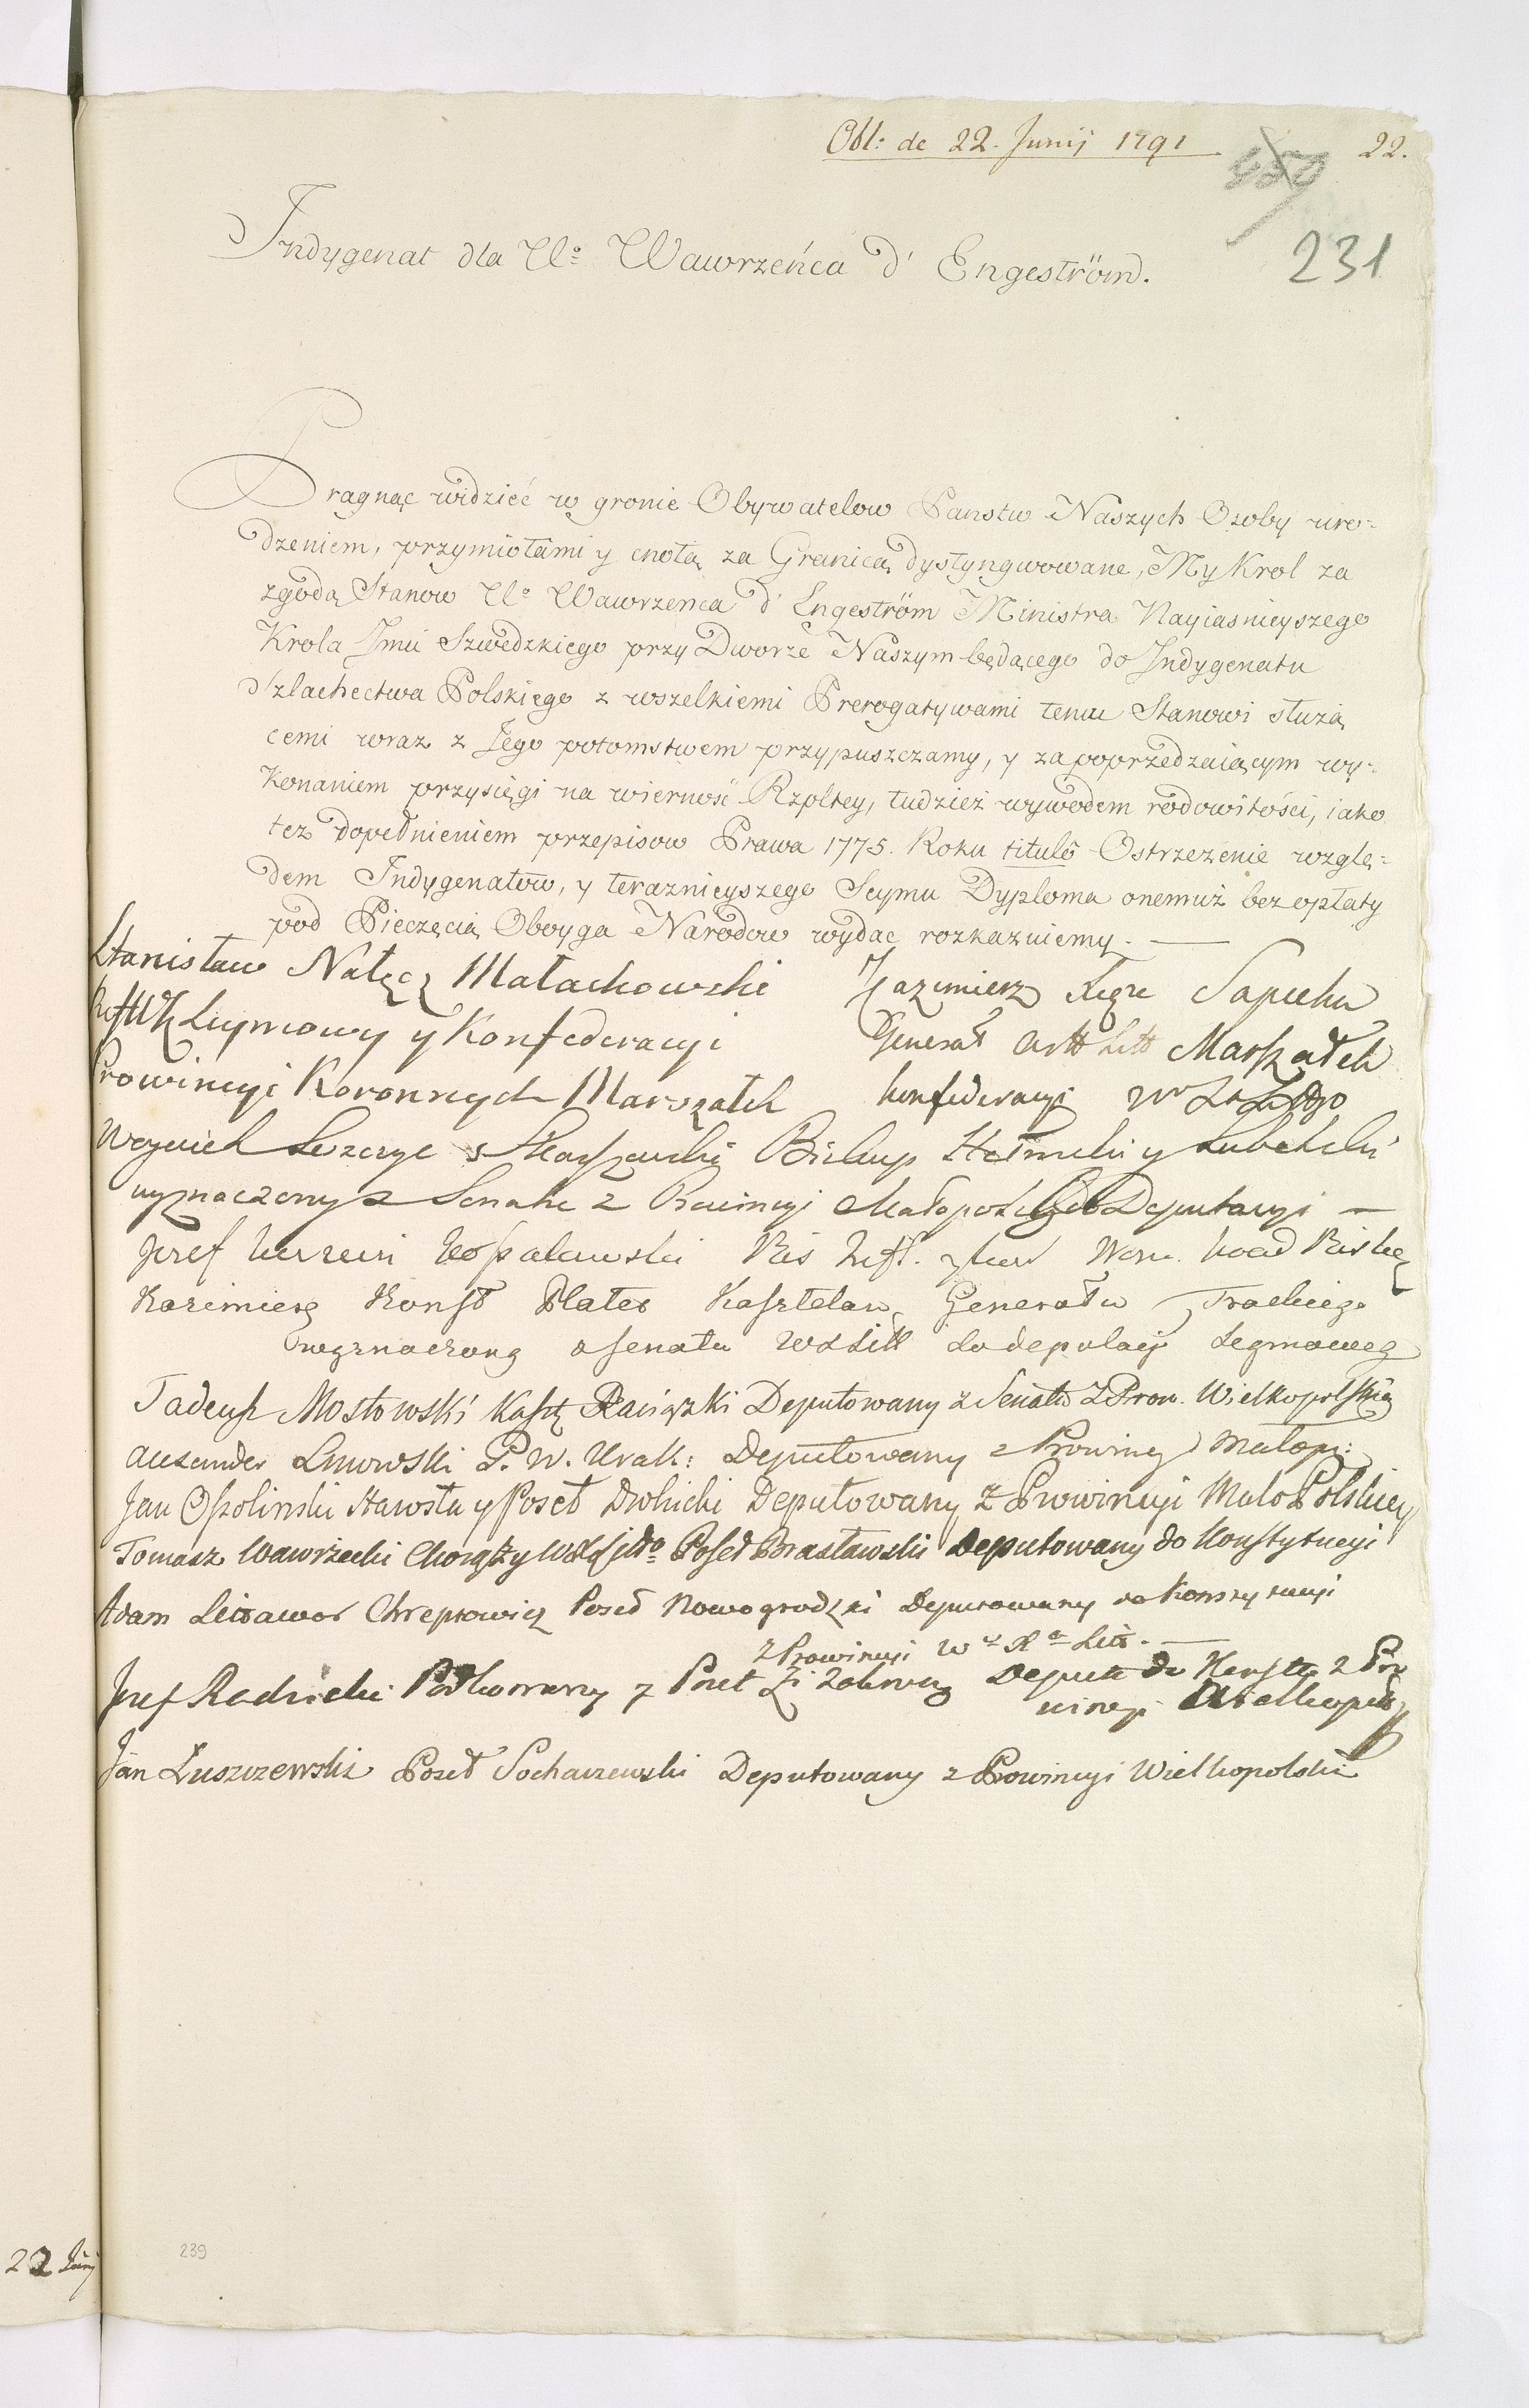 Obl: de 22. Junij 1791
22.
450
231
Indygenat dla Ur⁰ Wawrzeńca d' Engeström.
Pragnąc widzieć w gronie Obywatelow Panstw Naszych Osoby uro=
dzeniem, przymiotami y cnotą za Granicą dystyngwowane, My Krol za
zgodą Stanow Ur⁰ Wawrzenca d' Engeström Ministra Nayiasnieyszego
Krola Jmci Szwedzkiego przy Dworze Naszym będącego do Indygenatu
Szlachectwa Polskiego z wszelkiemi Prerogatywami temu Stanowi służą
cemi wraz z Jego potomstwem przypuszczamy, y za poprzedzaiącym wy=
konaniem przysięgi na wierność Rzpltey, tudzież wywodem rodowitości, iako
też dopełnieniem przepisow Prawa 1775. Roku titulô Ostrzeżenie wzglę=
dem Indygenatow, y teraznieyszego Seymu Dyploma onemuż bez opłaty
pod Pieczęcią Oboyga Narodow wydac rozkazuiemy. —
Stanisław Nałęcz Małachowski
Seymowy y Konfederacyi
Prowincyi Koronnych Marszałek
Kazimierz Sapieha
Generał Artt Litt Marszałek
konfederacyi
Woyciech Skarszewski Biskup Hełmski y Lubelski
wyznaczony z Senatu z Prowincyi Małopols do Deputacyi —
Jozef Kossakowski Bis Infl.
Kazimierz Konst Plater Kasztelan Generału Trockiego
wyznaczony z senatu WXLitt do deputacyi Seymowey
Tadeusz Mostowski Kaszt Raciązki Deputowany z Senatu z Prow. Wielkopolskiey
Alexander Linowski P. W. Krak: Deputowany z Prowincy Małop:
Jan Ossolinski Starosta y Poseł Drohicki Deputowany z Prowincyi Mało Polskiey
Tomasz Wawrzecki Chorąży WXLitto Poseł Brasławski Deputowany do Konstytucyi
Adam Litawor Chreptowicz Poseł Nowogrodzki Deputowany do Konstytucyi
z Prowincyi Wo Xa Litt. —
Jozef Radzicki Podkomorzy y Poseł Zi Zakroczy Deputt do Konstty z Pro
wincyi Wielkopols
Jan Łuszczewski Poseł Sochaczewski Deputowany z Prowincyi Wielkopolski
239
22 Junij